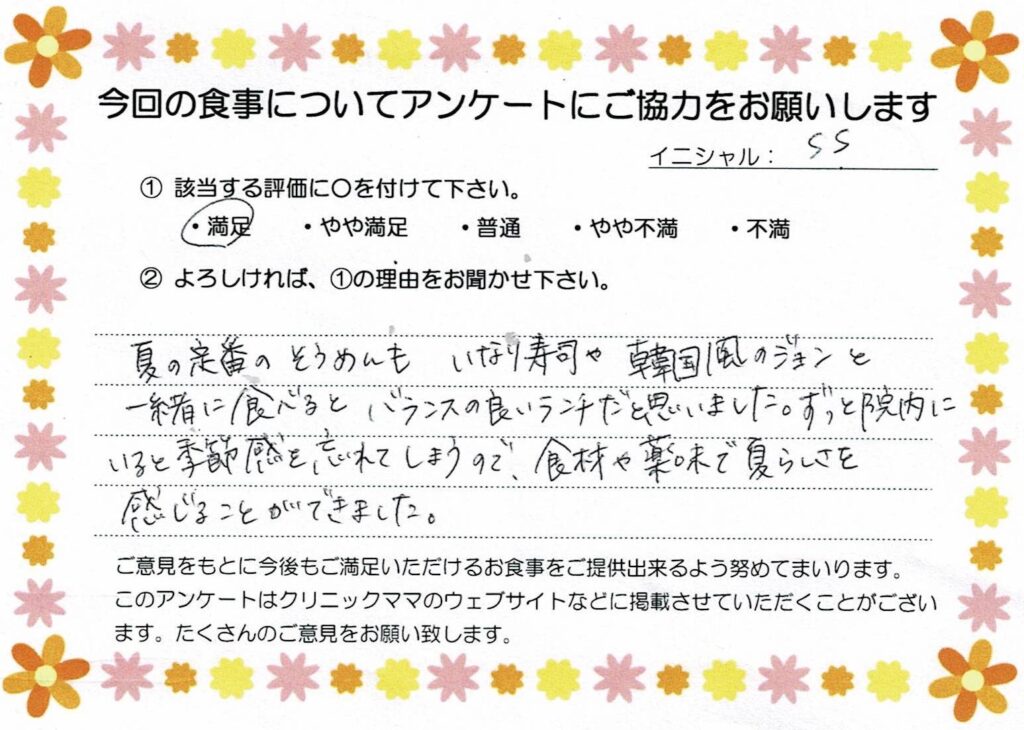 今回の食事についてアンケートにご協力をお願いします
イニシャル： SS
① 該当する評価に〇を付けて下さい。
・満足 ・やや満足 ・普通 ・やや不満 ・不満
② よろしければ、①の理由をお聞かせ下さい。
夏の定番のそうめんも いなり寿司や 韓国風のジョンと
一緒に食べると バランスの良いランチだと思いました。ずっと院内に
いると季節感を忘れてしまうので、食材や薬味で夏らしさを
感じることができました。
ご意見をもとに今後もご満足いただけるお食事をご提供出来るよう努めてまいります。
このアンケートはクリニックママのウェブサイトなどに掲載させていただくことがござい
ます。たくさんのご意見をお願い致します。